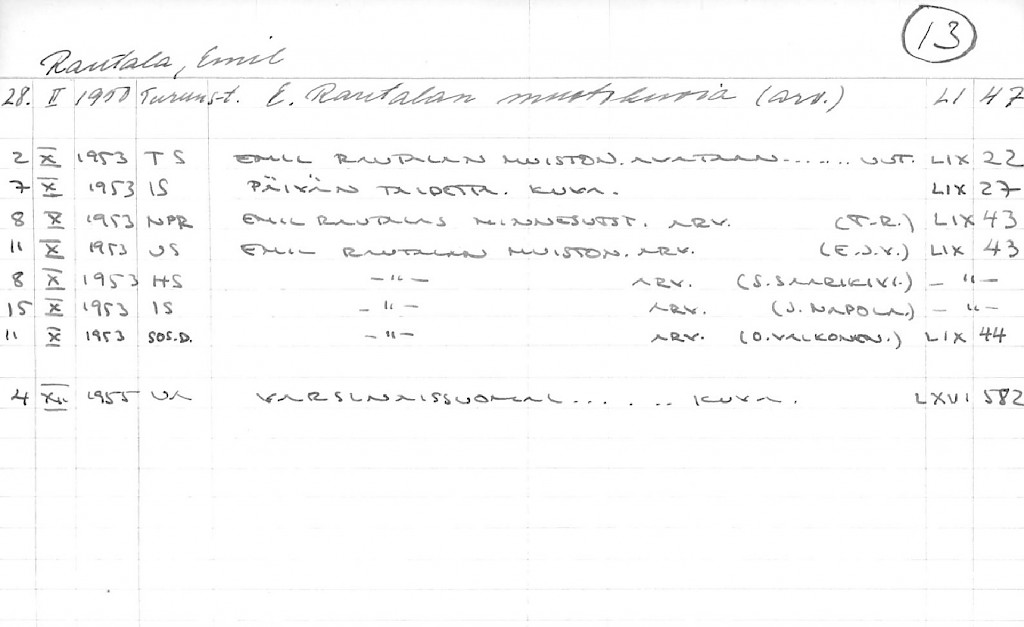 13
Rautala, Emil
28. II 1950 Turunst. E. Rautalan muotokuvia (arv.) LI 47
2 X 1953 TS EMIL RAUTALAN MUISTON. AVATAAN....... UUT. LIX 22
7 X 1953 IS PÄIVÄN TAIDETTA. KUVA. LIX 27
8 X 1953 NPR EMIL RAUTALAS MINNESUTST. ARV. (T-R.) LIX 43
11 X 1953 US EMIL RAUTALAN MUISTON. ARV. (E.J.V.) LIX 43
8 X 1953 HS –"– ARV. (S. SAARIKIVI.) –"–
15 X 1953 IS –"– ARV. (J. NAPOLA.) –"–
11 X 1953 SOS.D. –"– ARV. (O. VALKONEN.) LIX 44
4 1955 UA VARSINAISSUOMAL...... KUVA. LXVI 582